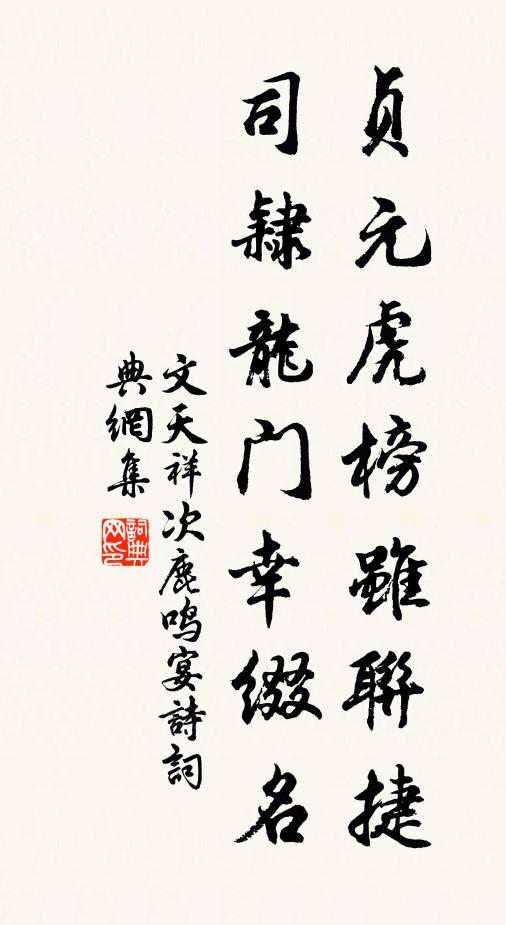 贞元虎榜雖聯捷
司隸龍门幸缀名
文天祥次鹿鸣宴詩詞
典網集
詞典网印